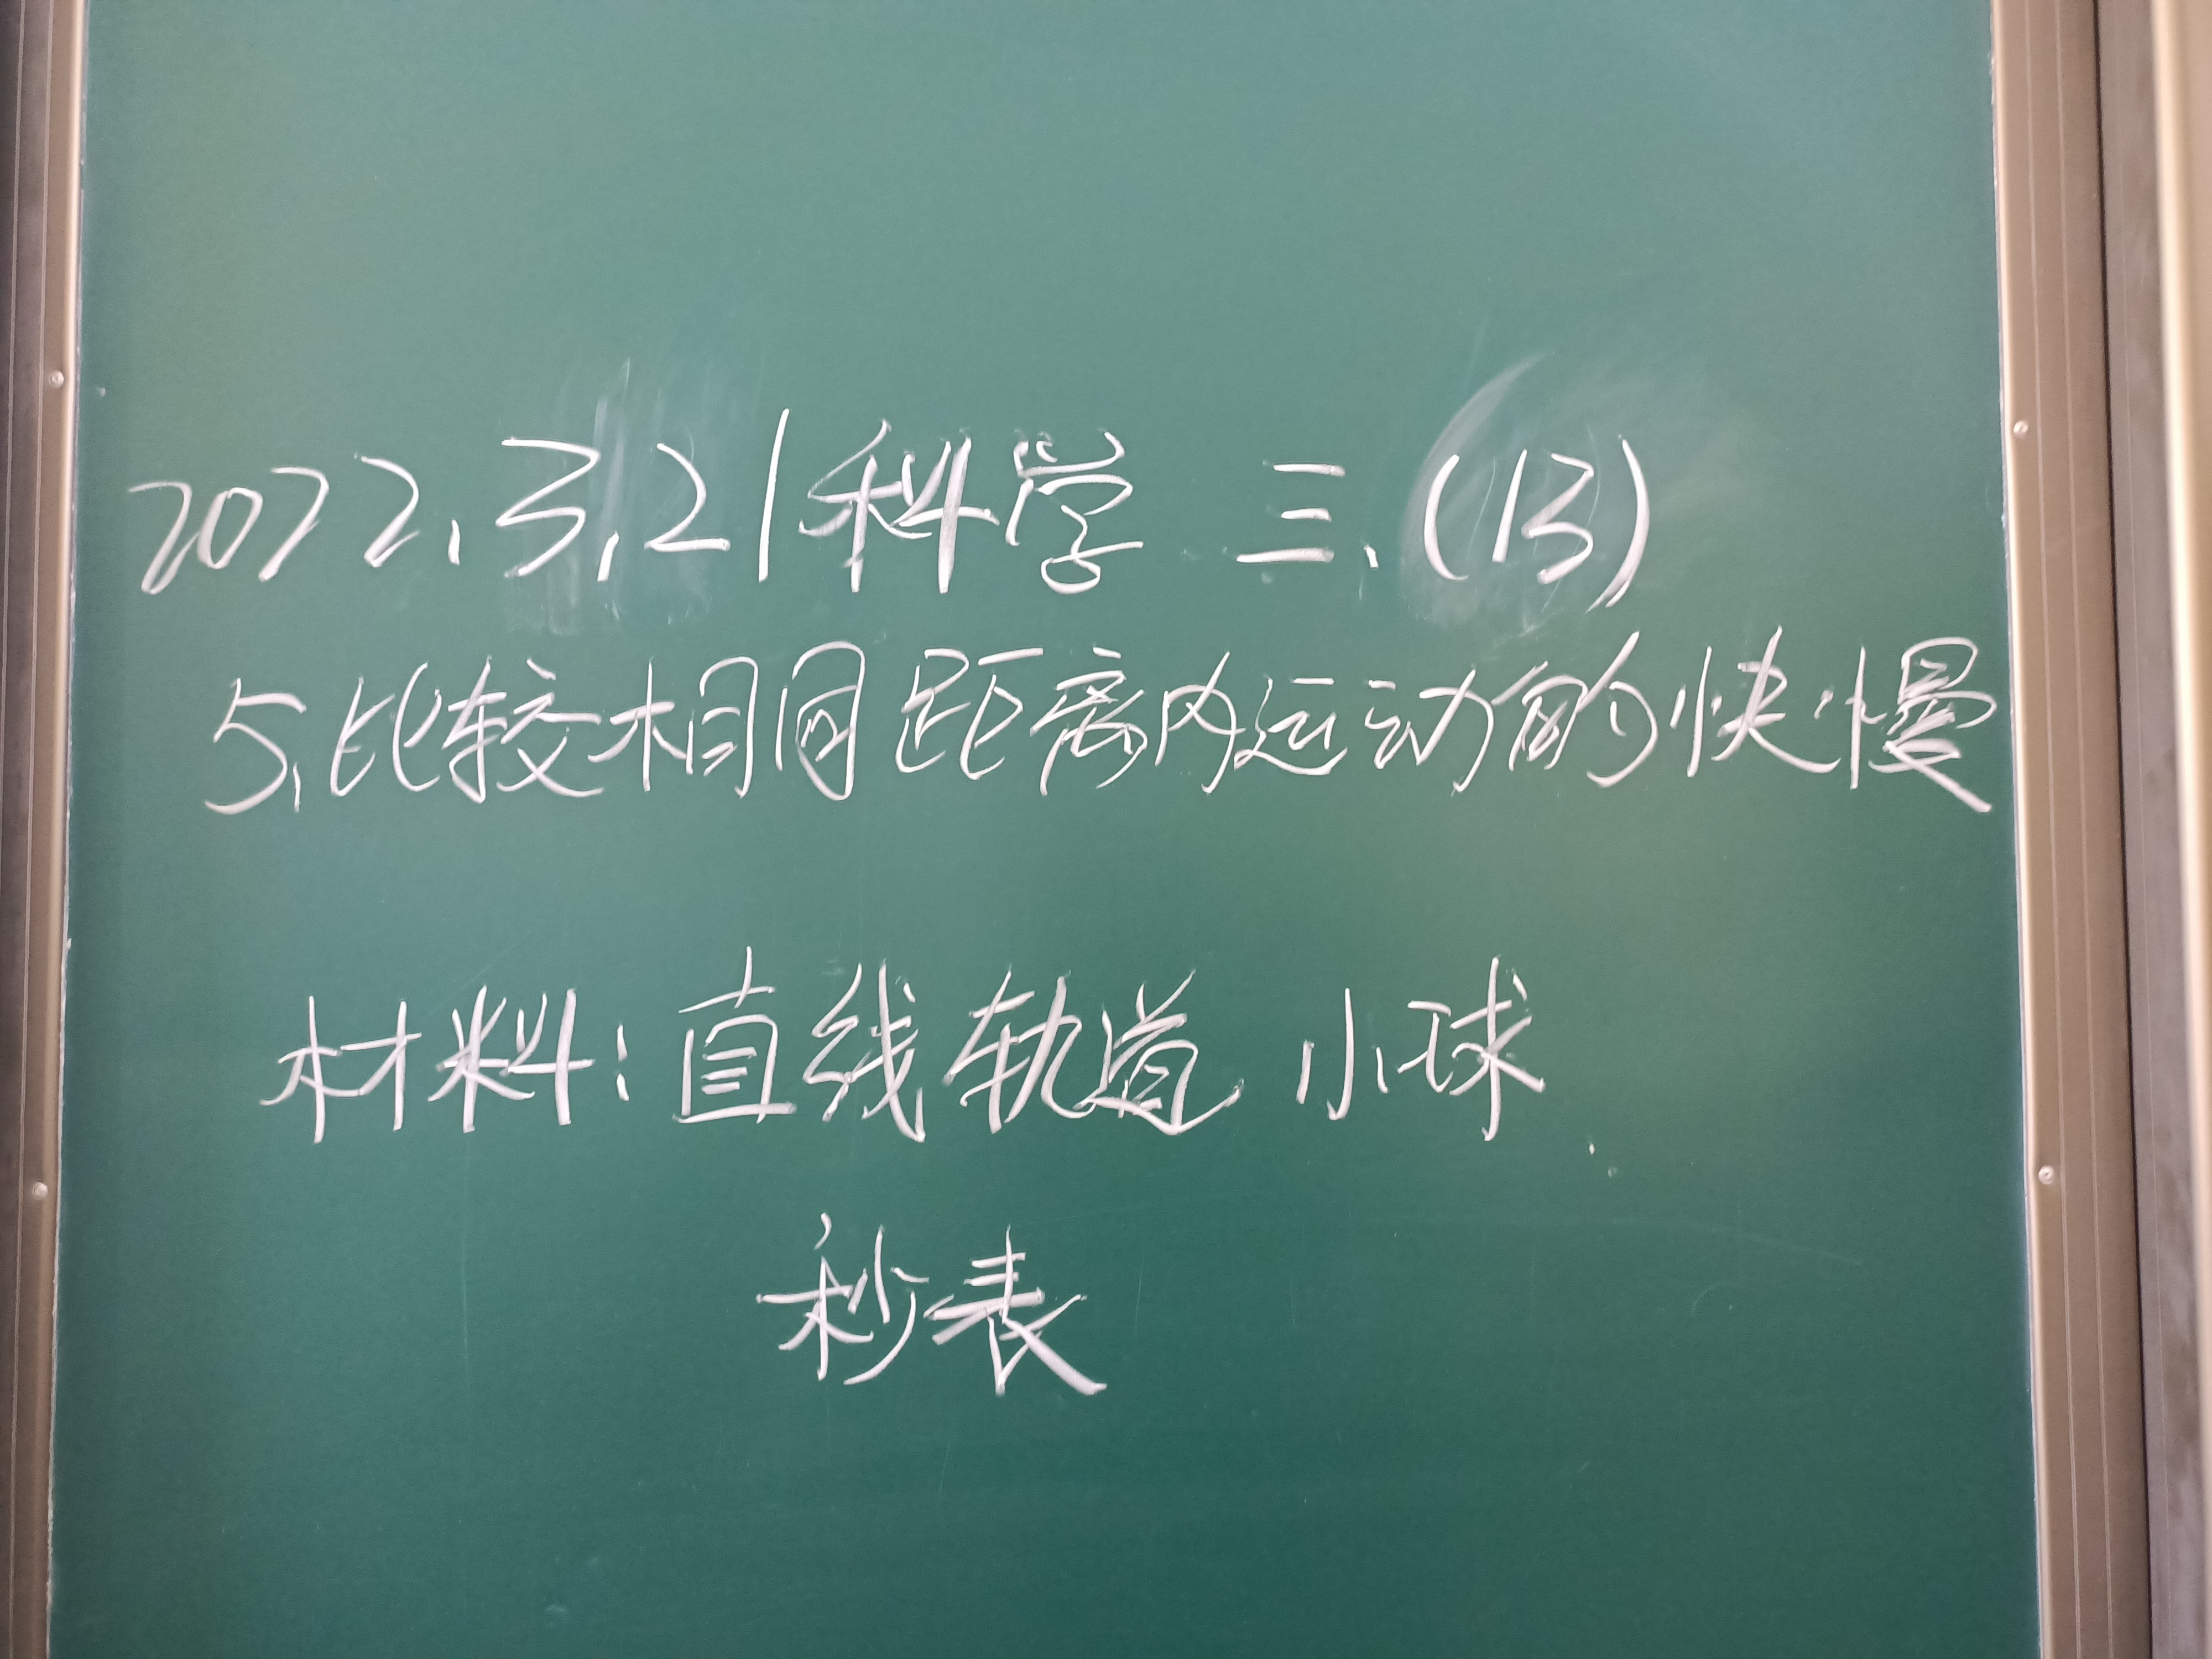 2022.3.21科学 三.(13)
5.比较相同距离内运动的快慢
材料:直线轨道 小球
秒表